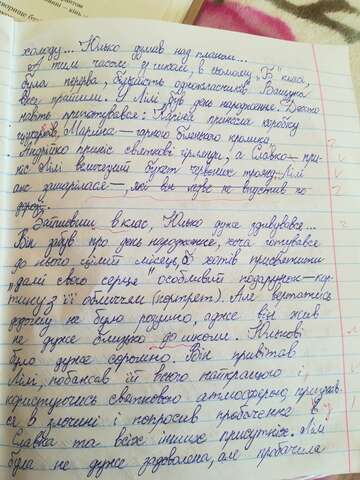 холоду... Юлько думав над планом...
А тим часом у школі, в 5-ому „Б" класі,
була перерва, більшість однокласників Вашука
вже прийшли. У Лілі був день народження. Багато
навіть пригнатувався: Каріна принесла коробку
цукерок, Марійка — гарного біленького кролика,
Андрійко приніс святкові гірлянди, а Славко — при-
ніс Лілі величезний букет червоних троянд. Лілі
аже зашарілася —, які він ледве не впустив по
дорозі.
Зайшовши в клас, Юлько дуже здивувався...
Він забув про день народження, хоча готувався
до нього цілий місяць, бо хотів присвятити
„дамі свого серця" особливий подарунок — кар-
тину з її обличчям (портрет). Але вертатись
додому не було розумно, адже він жив
не дуже близько до школи. Юлькові
було дуже соромно. Він привітав
Лілі, побажав їй всього найкращого і,
користуючись святковою атмосферою, признав-
ся в злочині і попросив пробачення в
Славка та всіх інших присутніх. Лілі
була не дуже задоволена, але пробачила